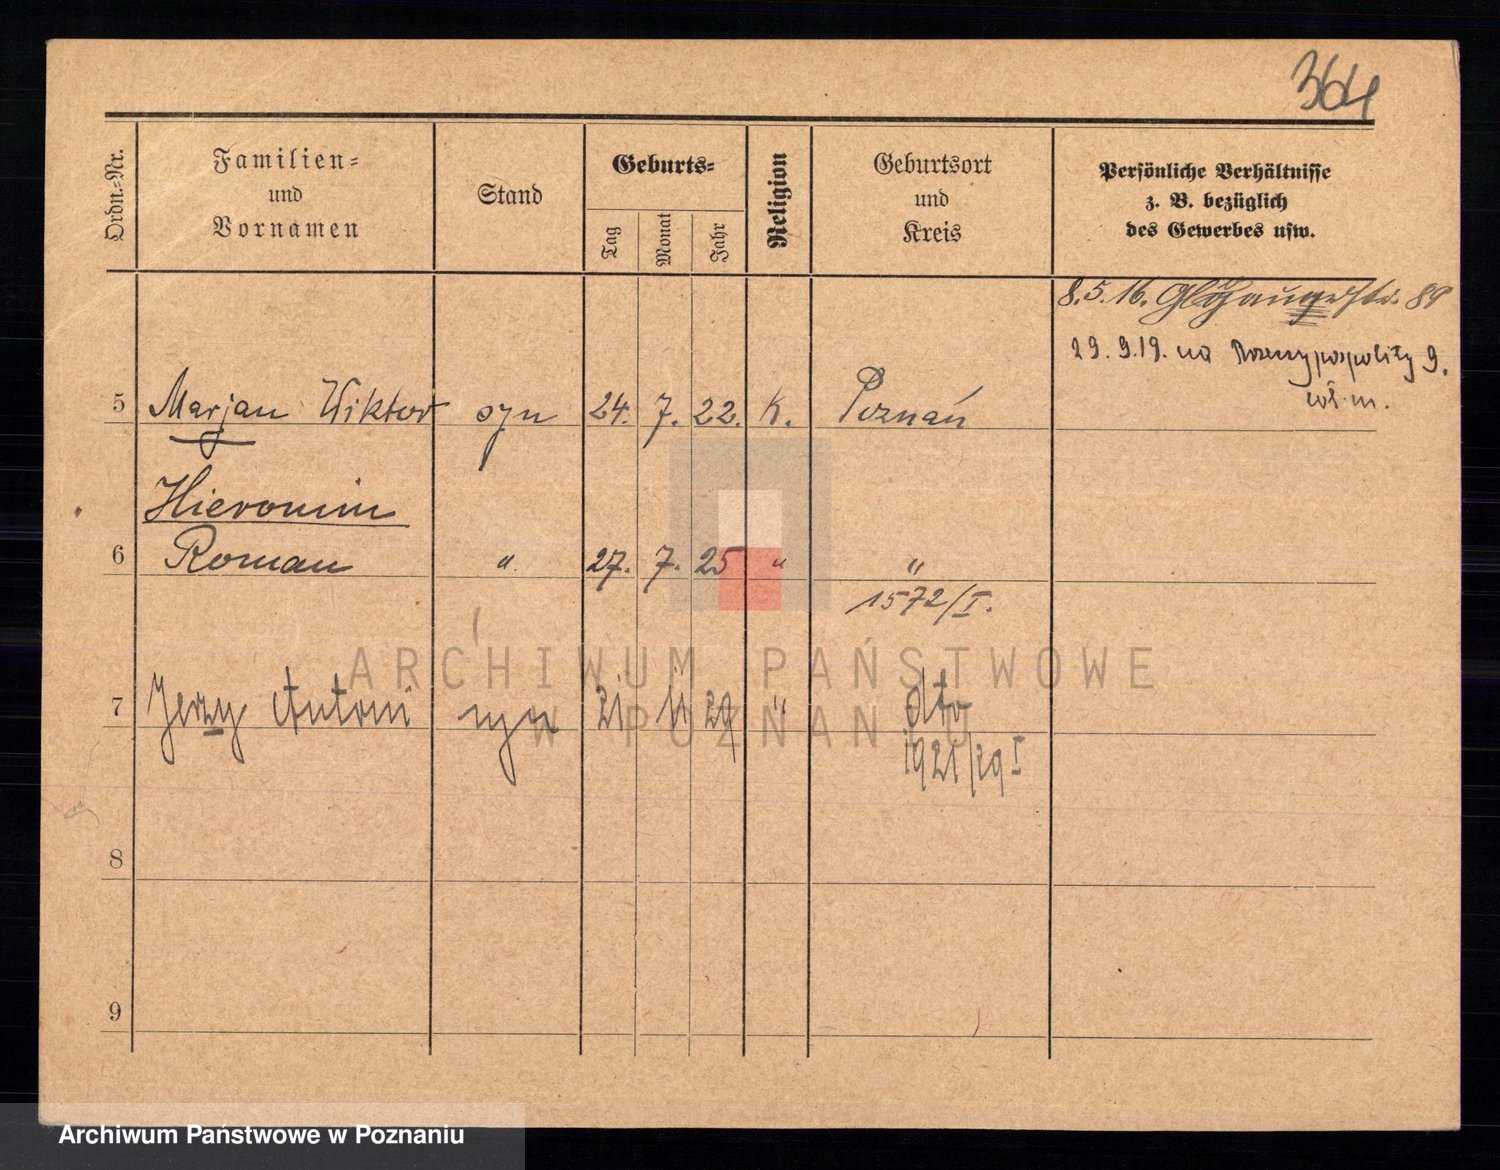 364
Ordn.-Nr.
Familien-
und
Vornamen
Stand
Geburts-
Tag
Monat
Jahr
Religion
Geburtsort
und
Kreis
Persönliche Verhältnisse
z. B. bezüglich
des Gewerbes usw.
8.5.16. 89
29.9.19. na 9.
5 Marjan Wiktor syn 24. 7. 22. K. Poznań
Hieronim
6 Roman " 27. 7. 25 " "
1572/I.
7 Jerzy Antoni syn 21 11 29 " dto
1921/29 I
8
9
ARCHIWUM PAŃSTWOWE
W POZNANIU
Archiwum Państwowe w Poznaniu